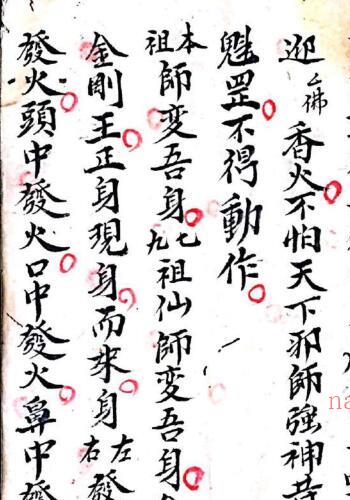 迎仏佛香火不怕天下邪師強神
魁罡不得動作
本祖師變吾身七九祖仙師變吾身
金剛王正身現身而來身左右發
發火頭中發火口中發火鼻中發